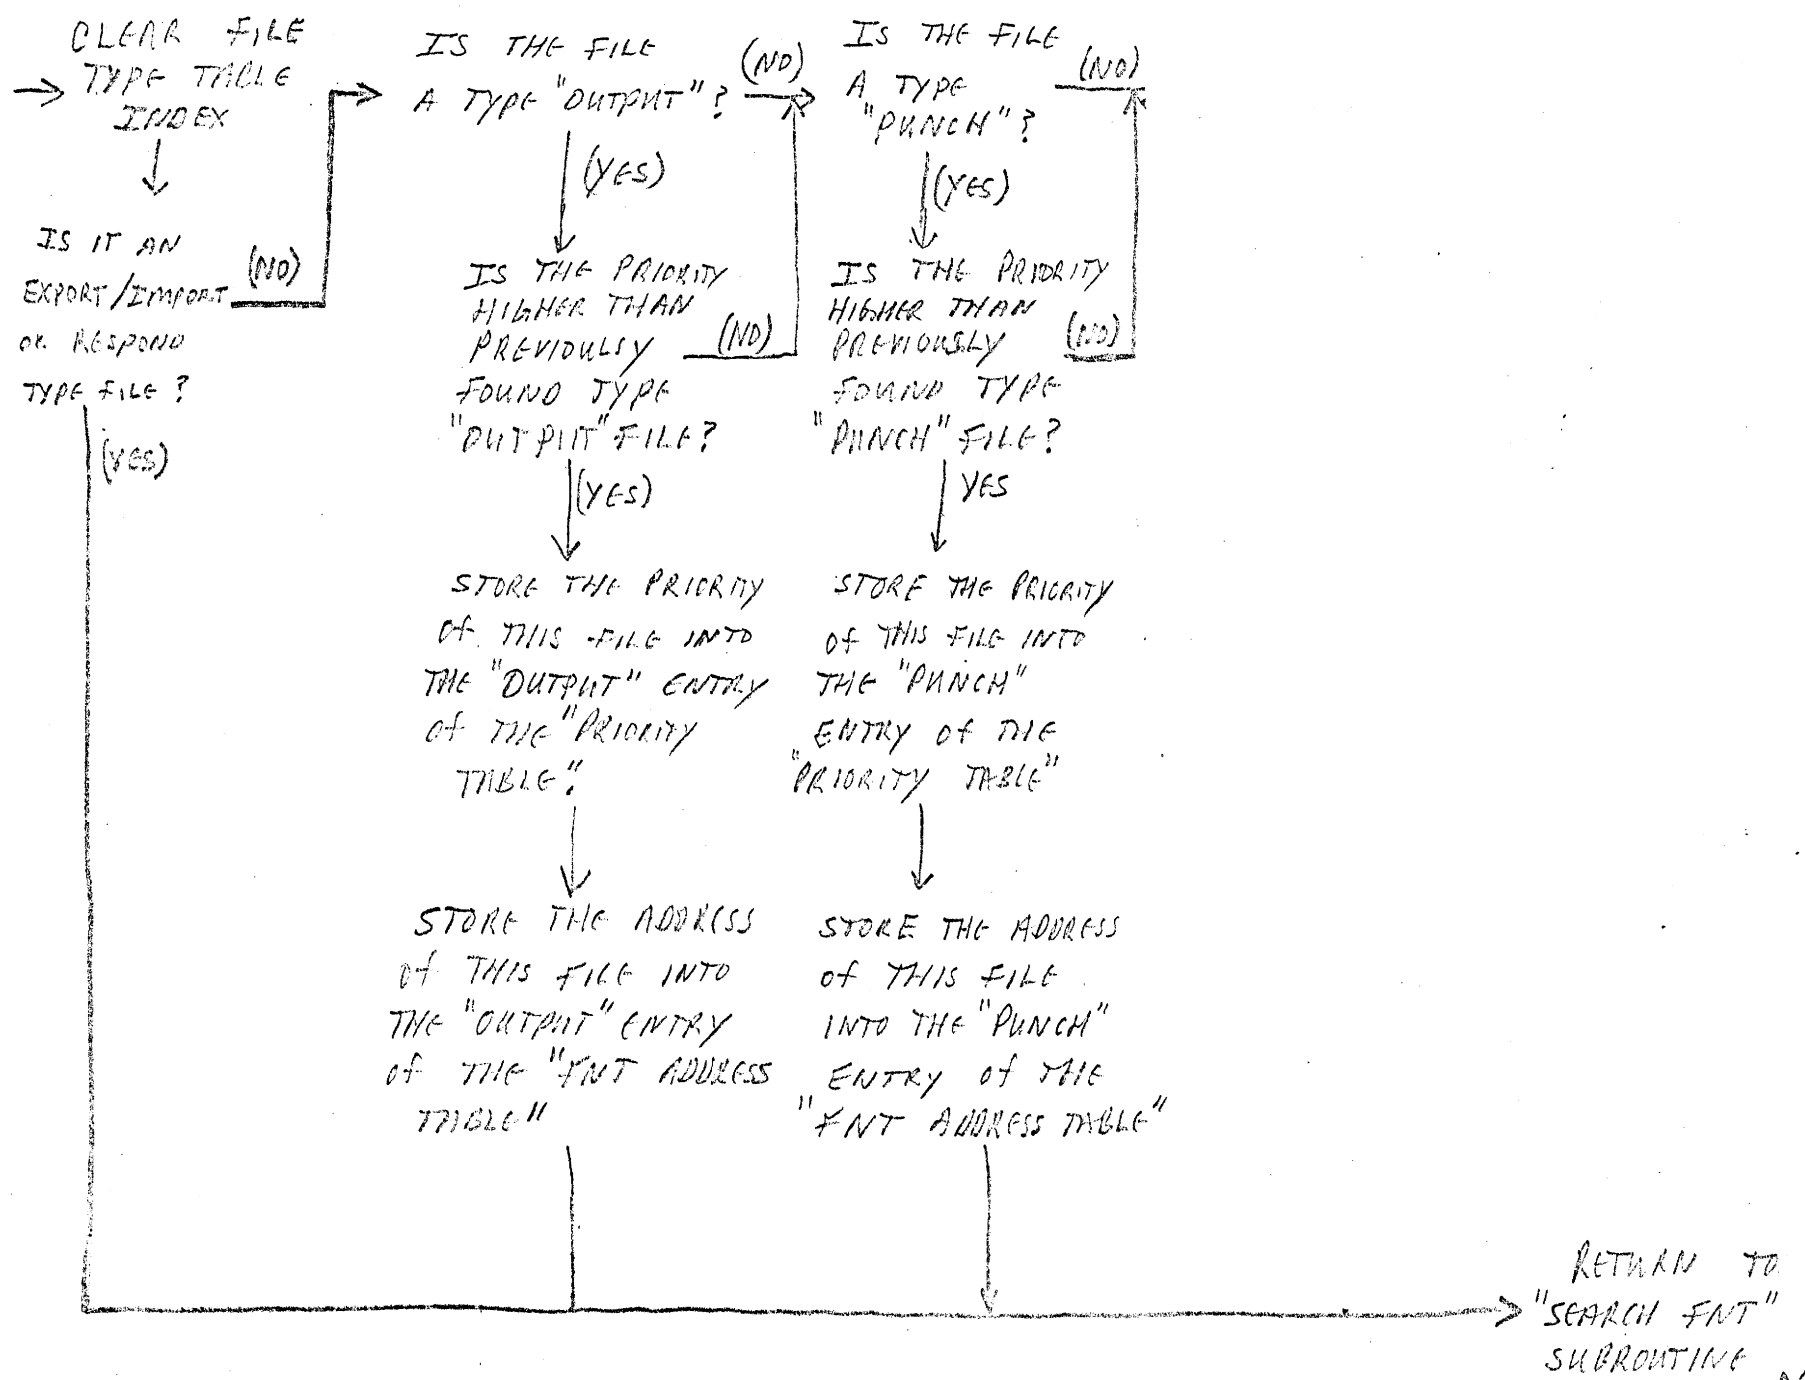 CLEAR FILE
TYPE TABLE
INDEX
IS IT AN
EXPORT/IMPORT
OR RESPOND
TYPE FILE?
(NO)
(YES)
IS THE FILE
A TYPE "OUTPUT"?
(NO)
(YES)
IS THE PRIORITY
HIGHER THAN
PREVIOULSY
FOUND TYPE
"OUTPUT" FILE?
(NO)
(YES)
STORE THE PRIORITY
Of THIS FILE INTO
THE "OUTPUT" ENTRY
Of THE "PRIORITY
TABLE".
STORE THE ADDRESS
Of THIS FILE INTO
THE "OUTPUT" ENTRY
Of THE "FNT ADDRESS
TABLE"
IS THE FILE
A TYPE
"PUNCH"?
(NO)
(YES)
IS THE PRIORITY
HIGHER THAN
PREVIOUSLY
FOUND TYPE
"PUNCH" FILE?
(NO)
YES
STORE THE PRIORITY
Of THIS FILE INTO
THE "PUNCH"
ENTRY Of THE
"PRIORITY TABLE"
STORE THE ADDRESS
Of THIS FILE
INTO THE "PUNCH"
ENTRY Of THE
"FNT ADDRESS TABLE"
RETURN TO
"SEARCH FNT"
SUBROUTINE